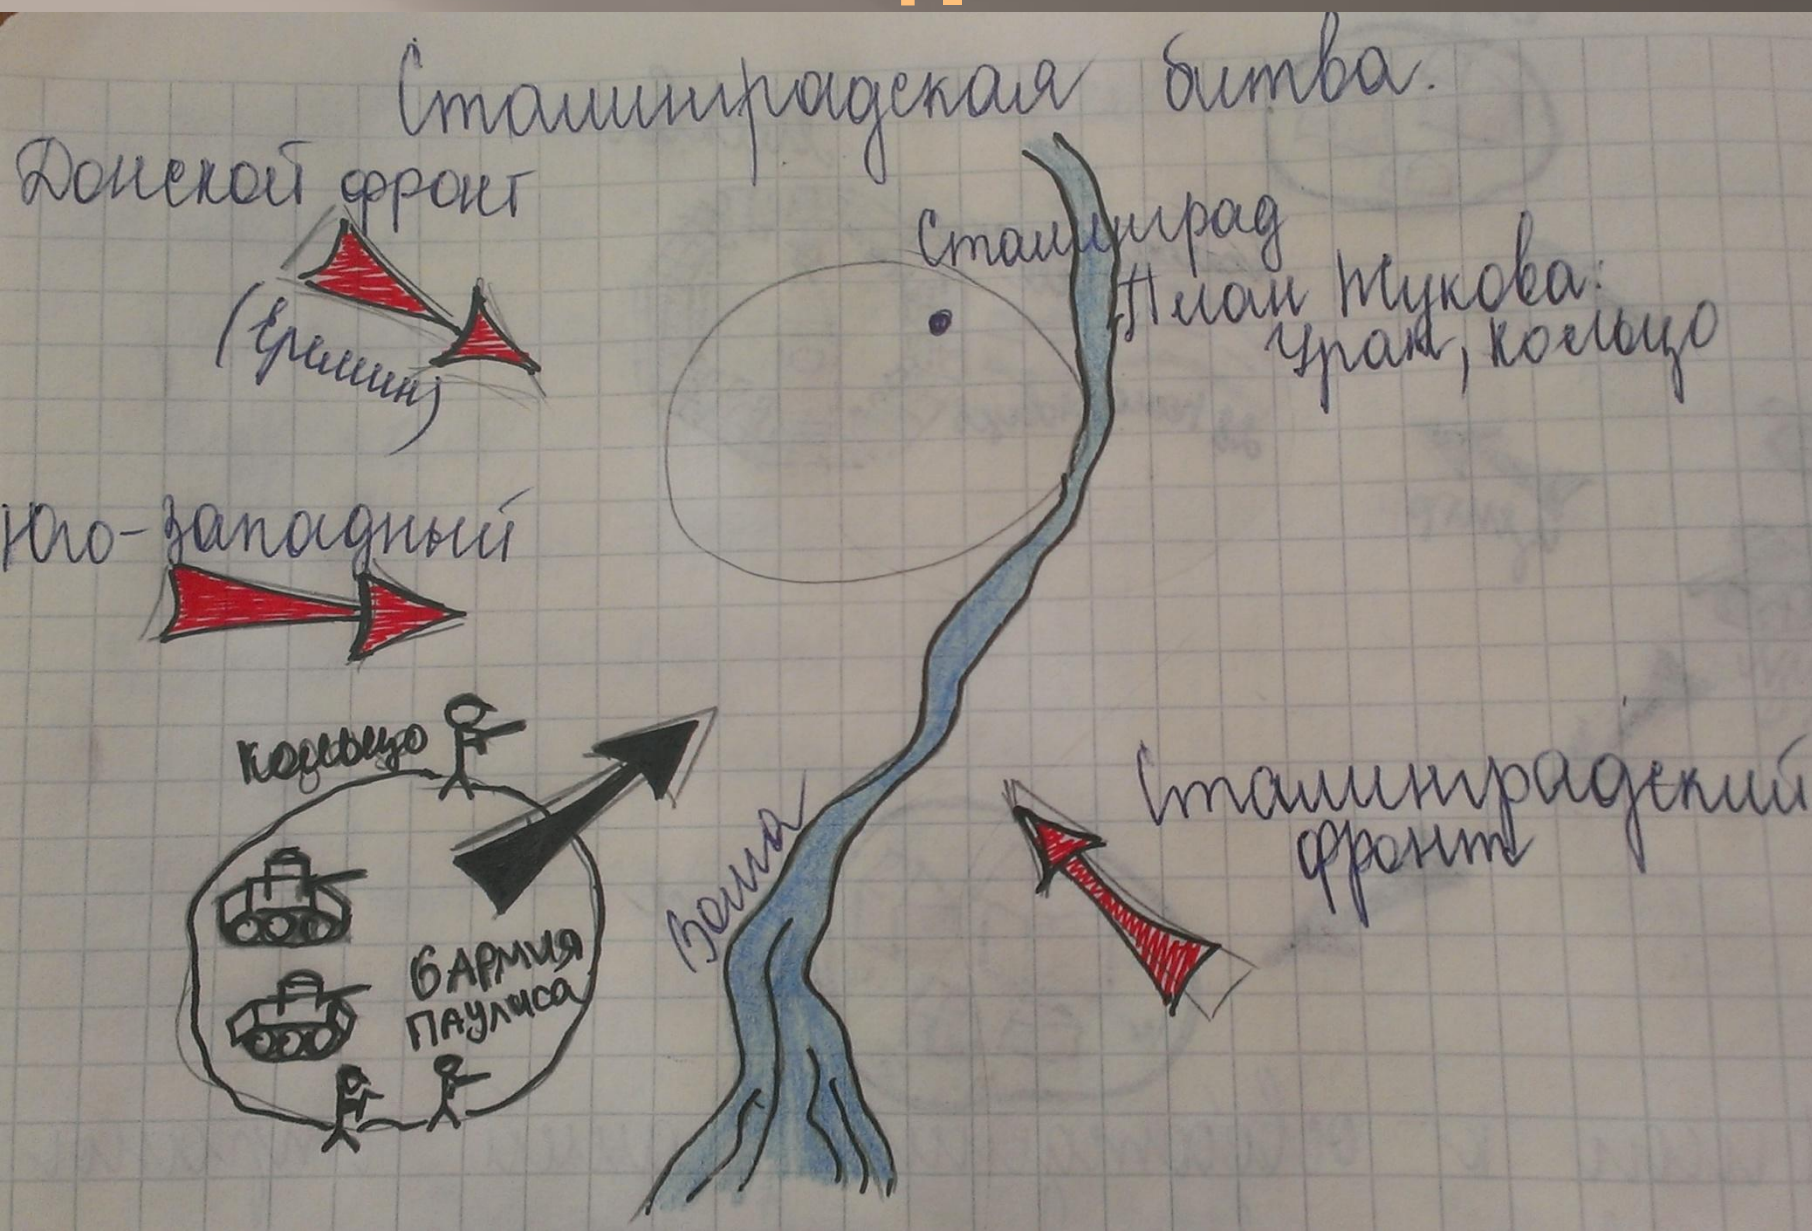 Сталинградская битва.
Донской фронт
(Еремин)
Сталинград
План Жукова:
Уран, кольцо
Юго-западный
кольцо
6 АРМИЯ
ПАУЛЮСА
Волга
Сталинградский
фронт